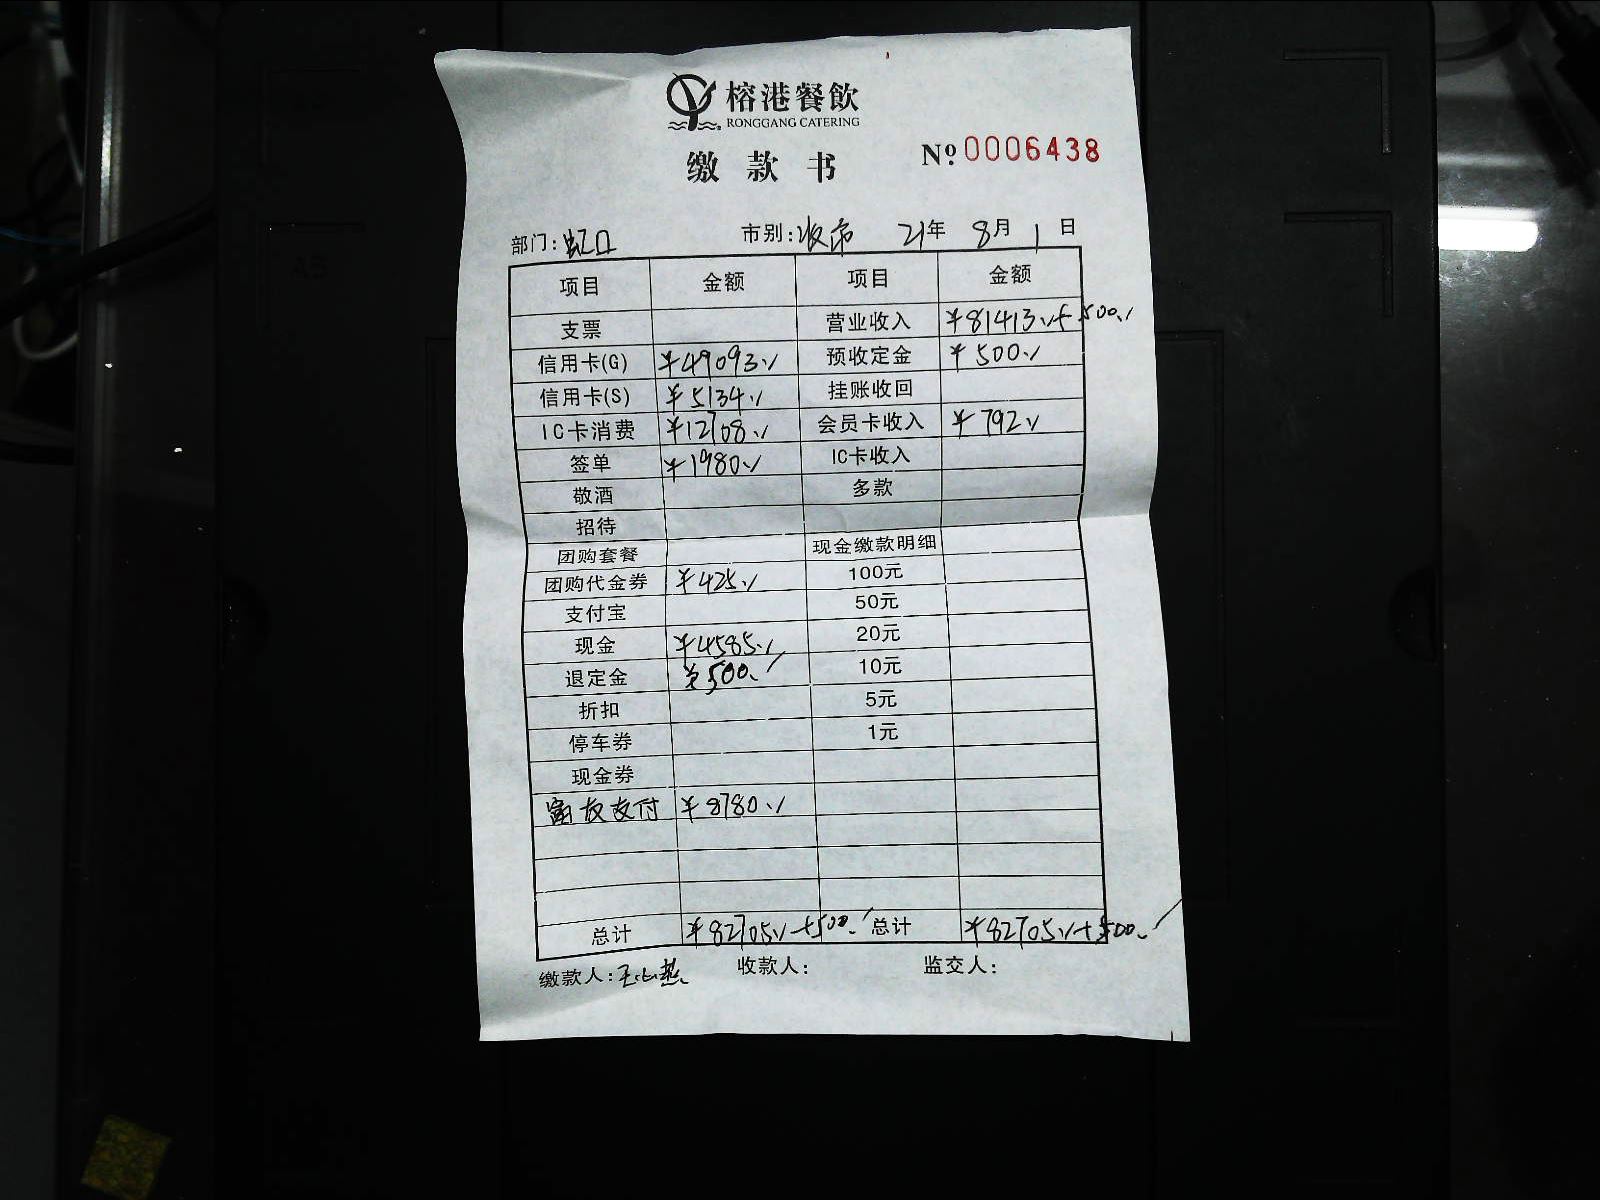 榕港餐飲
RONGGANG CATERING
缴款书
№ 0006438
部门: 虹口 市别: 收市 21年 8月 1日
项目 金额 项目 金额
支票 营业收入 ¥81413.√+500.√
信用卡(G) ¥49093.√ 预收定金 ¥500.√
信用卡(S) ¥5134.√ 挂账收回
IC卡消费 ¥12708.√ 会员卡收入 ¥792.√
签单 ¥1980.√ IC卡收入
敬酒 多款
招待
团购套餐 现金缴款明细
团购代金券 ¥425.√ 100元
支付宝 50元
现金 ¥4585.√ 20元
退定金 ¥500.√ 10元
折扣 5元
停车券 1元
现金券
富友支付 ¥8780.√
总计 ¥82705.√+500.√ 总计 ¥82705.√+500.√
缴款人: 收款人: 监交人: